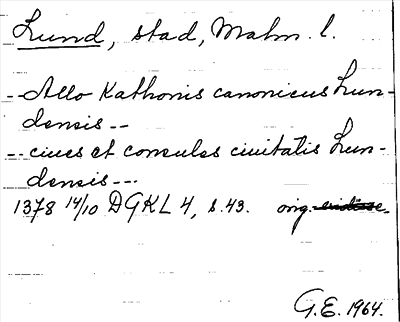 Lund, stad, Malm. l.
-- Allo Kathonis canonicus Lun-
densis --
-- ciues et consules ciuitatis Lun-
densis ---
1378 14/10 DGKL 4, s. 43. orig.
G.E. 1964.